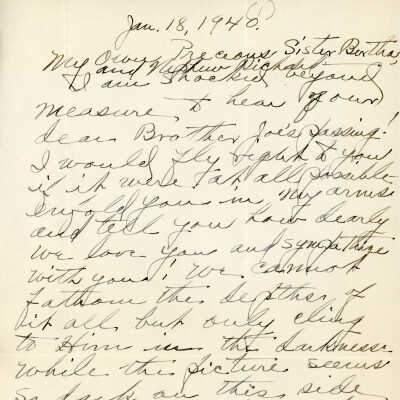 Jan. 18, 1940.
My Own Precious Sister Bertha,
and Nephew Richard
I am Shocked beyond
measure, to hear of our
dear Brother Joe's passing!
I would fly right to you
if it were at all possible
enfold you in my arms
and tell you how dearly
we love you and sympathize
with you! We cannot
fathom the depths of
it all but only cling
to Him in the darkness
while the picture seems
so dark on this side